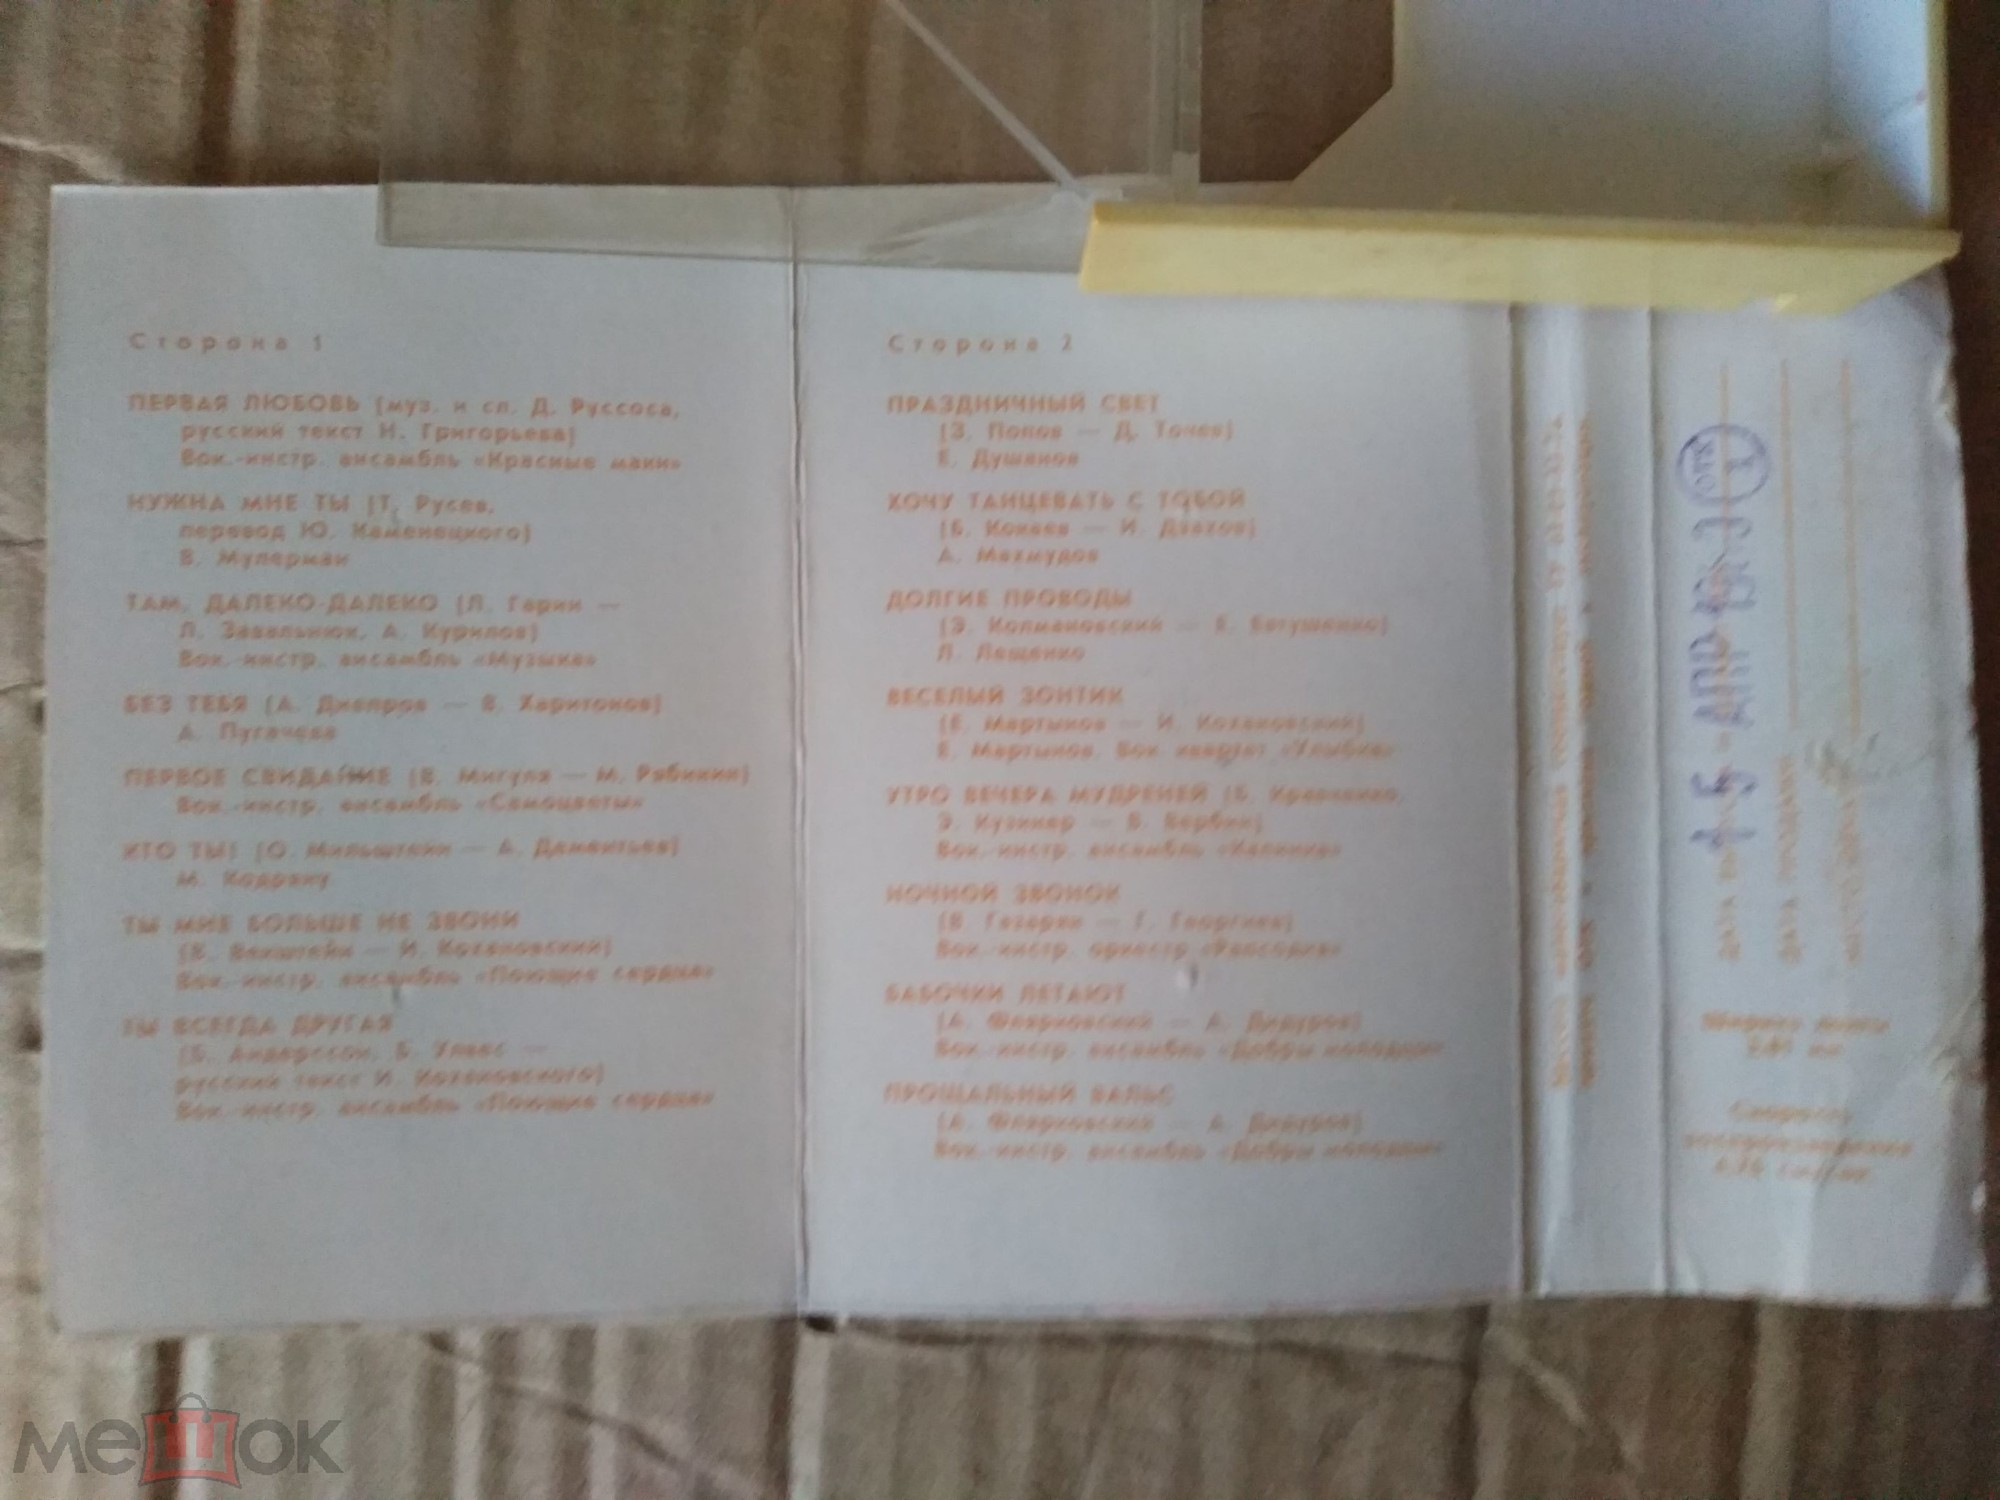 Сторона 1
ПЕРВАЯ ЛЮБОВЬ (муз. и сл. Д. Руссоса,
русский текст Н. Григорьева)
Вок.-инстр. ансамбль «Красные маки»
НУЖНА МНЕ ТЫ (Т. Русев,
перевод Ю. Каменецкого)
В. Мулерман
ТАМ, ДАЛЕКО-ДАЛЕКО (Л. Гарин —
Л. Завальнюк, А. Курилов)
Вок.-инстр. ансамбль «Музыка»
БЕЗ ТЕБЯ (А. Днепров — В. Харитонов)
А. Пугачева
ПЕРВОЕ СВИДАНИЕ (В. Мигуля — М. Рябинин)
Вок.-инстр. ансамбль «Самоцветы»
КТО ТЫ? (О. Мильштейн — А. Дементьев)
М. Кодряну
ТЫ МНЕ БОЛЬШЕ НЕ ЗВОНИ
(В. Векштейн — И. Кохановский)
Вок.-инстр. ансамбль «Поющие сердца»
ТЫ ВСЕГДА ДРУГАЯ
(Б. Андерссон, Б. Улвес —
русский текст И. Кохановского)
Вок.-инстр. ансамбль «Поющие сердца»
Сторона 2
ПРАЗДНИЧНЫЙ СВЕТ
(З. Попов — Д. Точев)
Е. Душанов
ХОЧУ ТАНЦЕВАТЬ С ТОБОЙ
(Б. — И. Дзахов)
А. Махмудов
ДОЛГИЕ ПРОВОДЫ
(Э. Колмановский — Е. Евтушенко)
Л. Лещенко
ВЕСЕЛЫЙ ЗОНТИК
(Е. Мартынов — И. Кохановский)
Е. Мартынов. Вок. квартет «Улыбка»
УТРО ВЕЧЕРА МУДРЕНЕЙ (Б. Кравченко,
Э. Кузинер — В. Вербин)
Вок.-инстр. ансамбль «Калинка»
НОЧНОЙ ЗВОНОК
(В. Газарян — Г. Георгиев)
Вок.-инстр. оркестр «Рапсодия»
БАБОЧКИ ЛЕТАЮТ
(А. Флярковский — А. Дидуров)
Вок.-инстр. ансамбль «Добры молодцы»
ПРОЩАЛЬНЫЙ ВАЛЬС
(А. Флярковский — А. Дидуров)
Вок.-инстр. ансамбль «Добры молодцы»
ДАТА
АПР
ДАТА ПРОДАЖИ
Ширина ленты
3,81 мм
Скорость
воспроизведения
4,76 см/сек
мешок